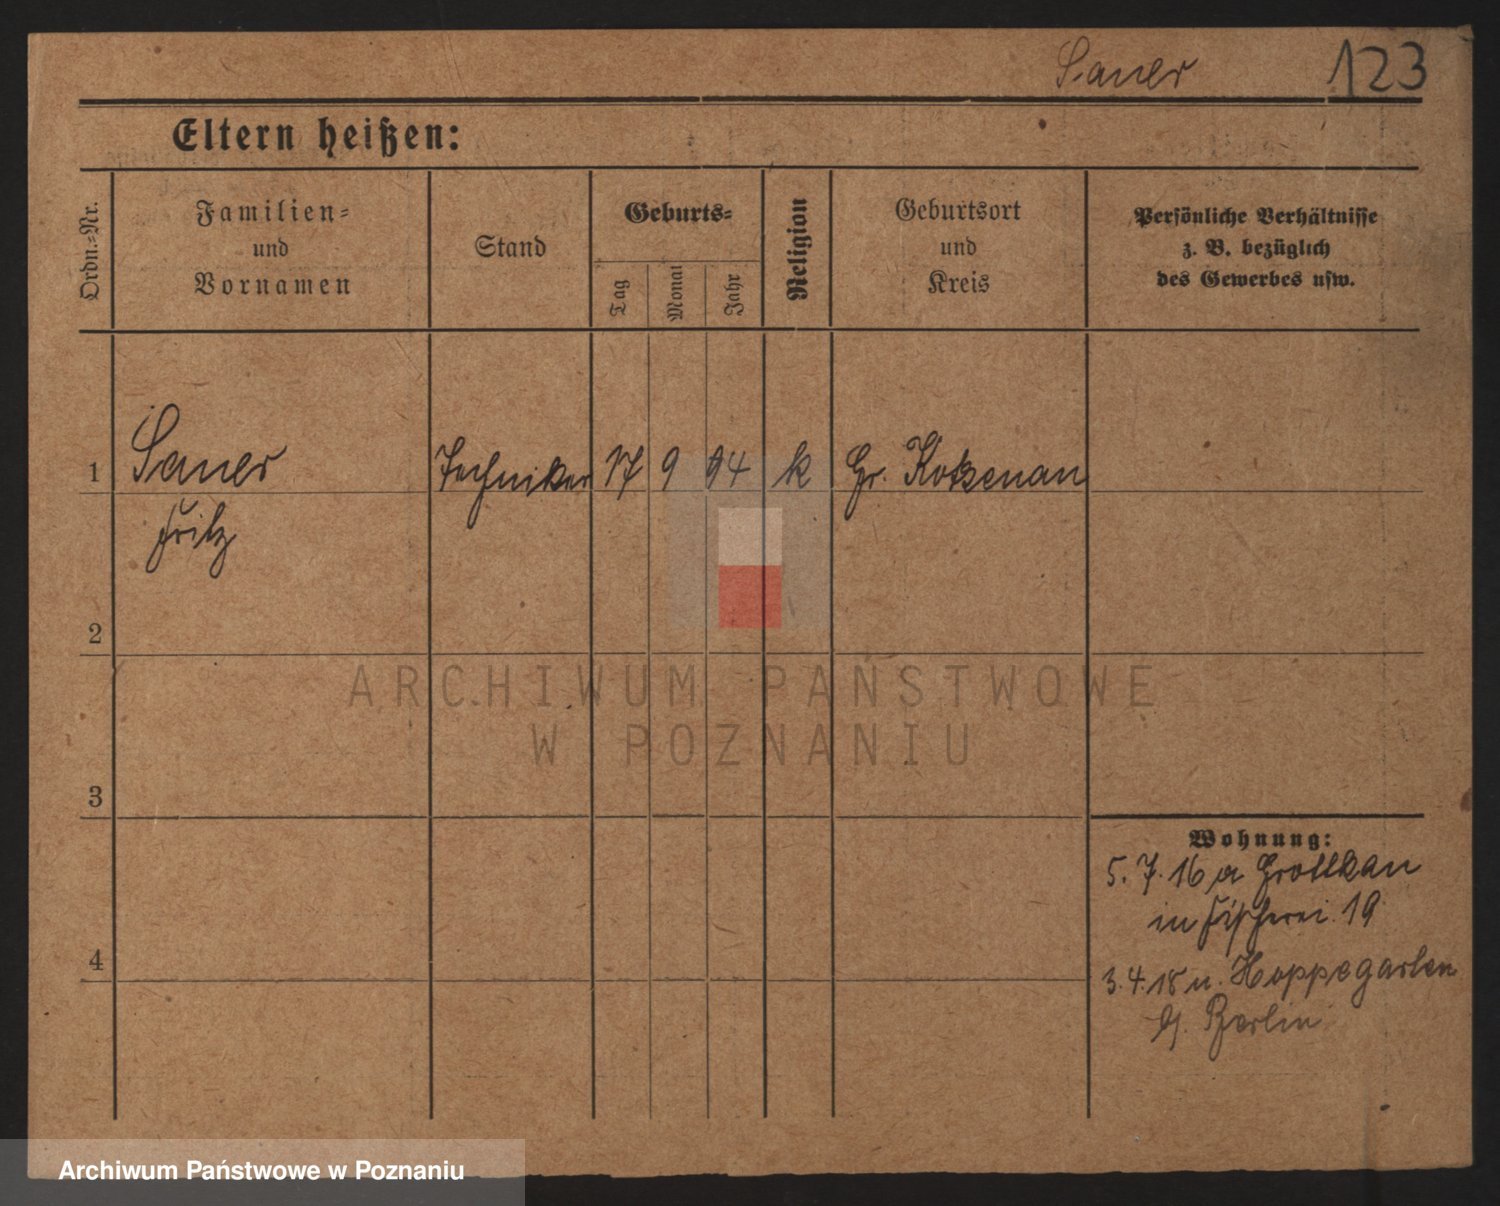 Sauer 123
Eltern heißen:
Ordn.=Nr.
Familien=
und
Vornamen
Stand
Geburts=
Tag Monat Jahr
Religion
Geburtsort
und
Kreis
Persönliche Verhältnisse
z. B. bezüglich
des Gewerbes usw.
1 Sauer Techniker 17 9 94 k Gr. Kotzenau
Fritz
2
3
4
Wohnung:
5. 7. 16 a Grottkau
in Fischerei 19
3. 4. 18 n. Hoppegarten
b. Berlin
ARCHIWUM PAŃSTWOWE
W POZNANIU
Archiwum Państwowe w Poznaniu